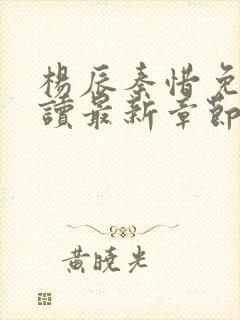 楊辰秦惜免
讀最新章節
黃曉光